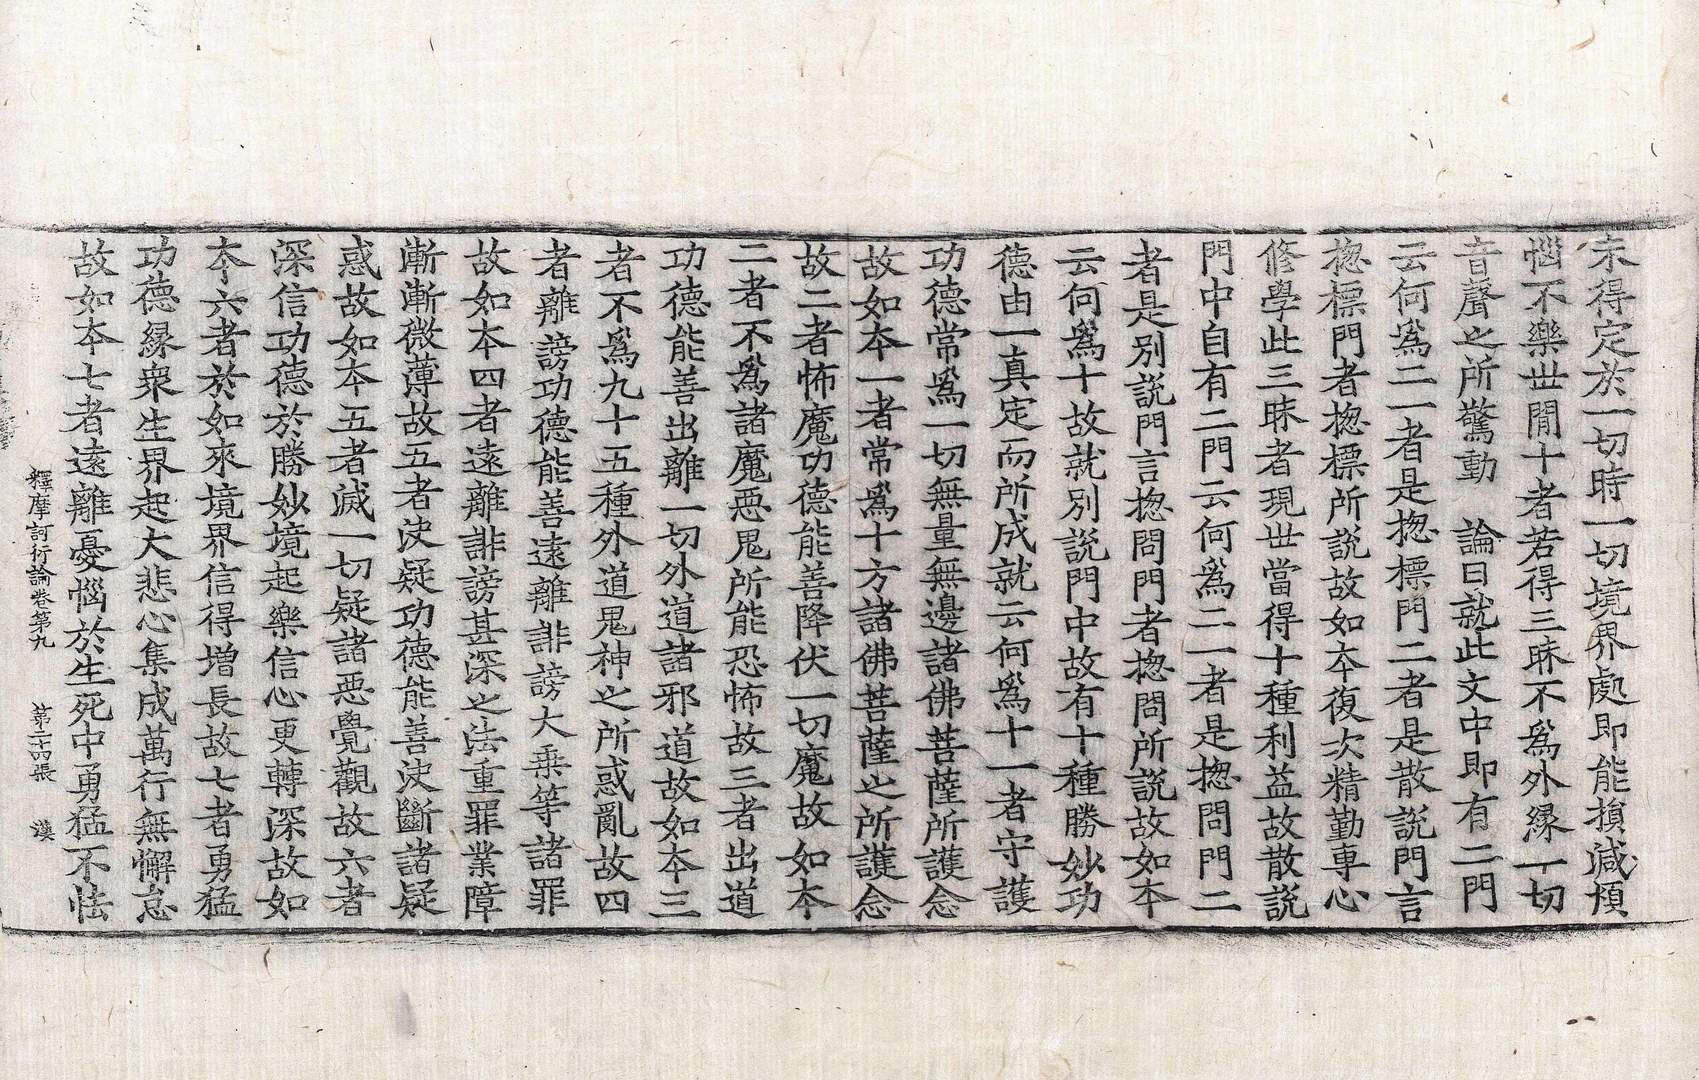 未得定於一切時一切境界處即能損減煩
惱不樂世閒十者若得三昧不爲外縁一切
音聲之所驚動　論曰就此文中即有二門
云何爲二一者是揔標門二者是散說門言
揔標門者揔標所說故如夲復次精勤專心
修學此三昧者現世當得十種利益故散說
門中自有二門云何爲二一者是揔問門二
者是別說門言揔問門者揔問所說故如本
云何爲十故就別說門中故有十種勝妙功
德由一真定而所成就云何爲十一者守護
功德常爲一切無量無邊諸佛菩薩所護念
故如夲一者常爲十方諸佛菩薩之所護念
故二者怖魔功德能善降伏一切魔故如本
二者不爲諸魔惡鬼所能恐怖故三者出道
功德能善出離一切外道諸邪道故如夲三
者不爲九十五種外道鬼神之所惑亂故四
者離謗功德能善遠離誹謗大乗等諸罪
故如夲四者遠離誹謗甚深之法重罪業障
漸漸微薄故五者決疑功德能善決斷諸疑
惑故如夲五者滅一切疑諸惡覺觀故六者
深信功德於勝妙境起樂信心更轉深故如
夲六者於如來境界信得增長故七者勇猛
功德縁衆生界起大悲心集成萬行無懈怠
故如夲七者遠離憂惱於生死中勇猛不怯
釋摩訶衍論卷第九　第二十四張　漢